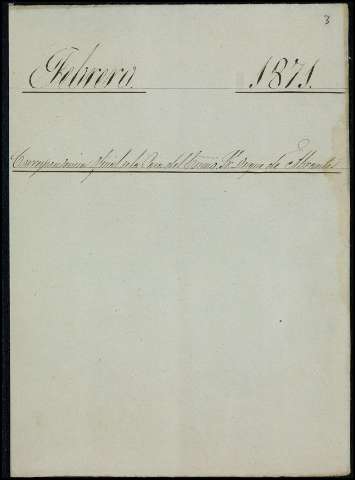 3
Febrero. 1871.
Correspondencia oficial de la Casa del Excmo. Sr. Duque de Abrantes